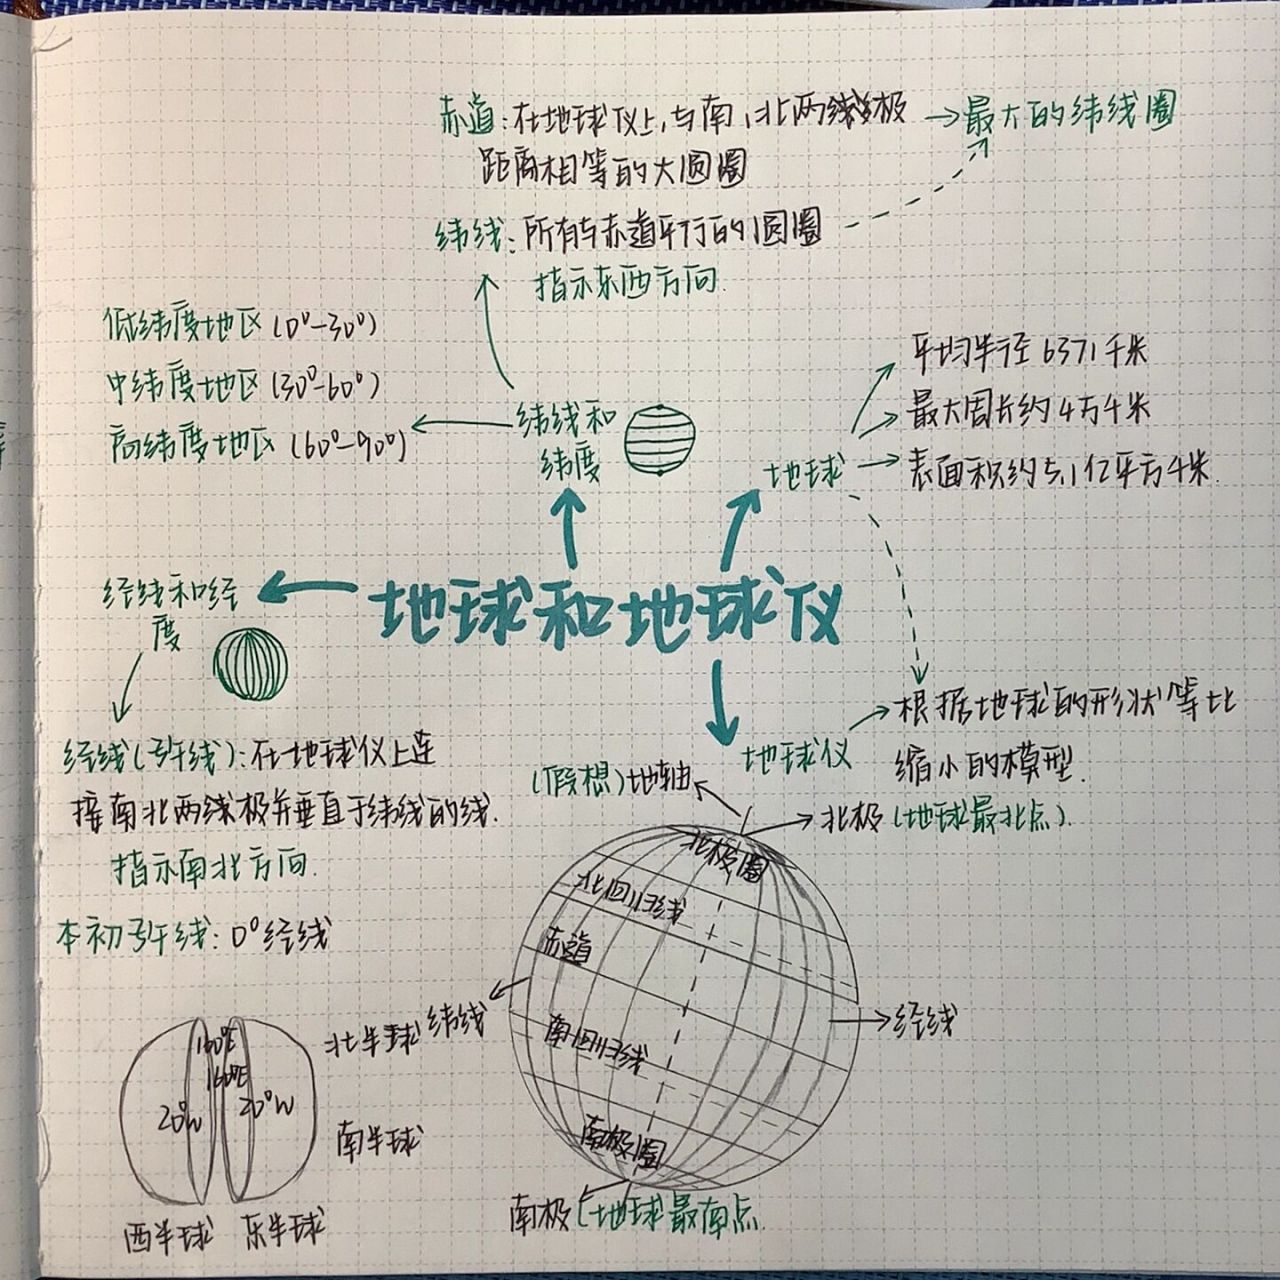 赤道：在地球仪上，与南、北两极
距离相等的大圆圈
→最大的纬线圈
纬线：所有与赤道平行的圆圈
指示东西方向.
低纬度地区(0°-30°)
中纬度地区(30°-60°)
高纬度地区(60°-90°)
纬线和
纬度
平均半径6371千米
最大周长约4万千米
地球
表面积约5.1亿平方千米.
地球和地球仪
经线和经
度
经线(子午线)：在地球仪上连
接南北两极并垂直于纬线的线.
指示南北方向.
本初子午线：0°经线
地球仪
根据地球的形状等比
缩小的模型.
(假想)地轴
北极(地球最北点).
北极圈
北回归线
赤道
南回归线
南极圈
纬线
经线
南极(地球最南点.
北半球
南半球
160°E
160°E
20°W
20°W
西半球 东半球